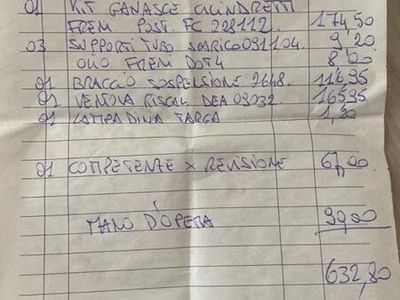 01 KIT GANASCE CILINDRETTI
FREM POST. FC 228112. 174,50
03 SUPPORTI TUBO SCARICO 031104. 9,20
OLIO FREM DOT4 8,00
01 BRACCIO SOSPENSIONE 2648. 116,95
01 VENTOLA RISCAL DEA 09032. 165,95
01 LAMPADINA TARGA 1,20
01 COMPETENZE X REVISIONE 67,00
MANO D'OPERA 90,00
632,80